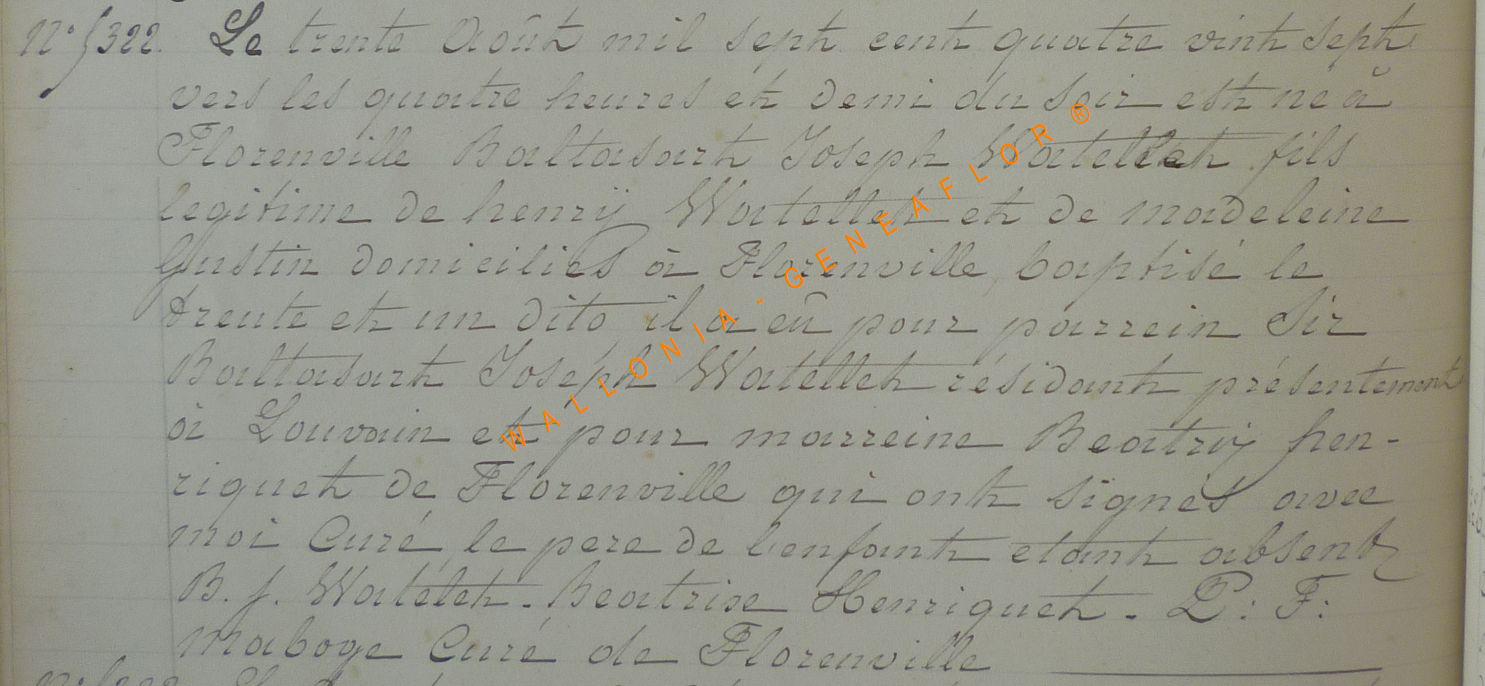 N° 5322. Le trente Août mil sept cent quatre vint sept
vers les quatre heures et demi du soir est né à
Florenville Baltasart Joseph Watellet fils
legitime de henrÿ Watellet et de madeleine
Gustin domiciliés à Florenville, baptisé le
trente et un dito il a eû pour parrein Sir
Baltasart Joseph Watellet résidant présentement
à Louvain et pour marreine Beatrix hen-
riquet de Florenville qui ont signés avec
moi Curé, le pere de l'enfant etant absent
B. J. Watelet. Beatrise Henriquet. P: F:
Maboge Curé de Florenville
WALLONIA - GENEAFLOR ®